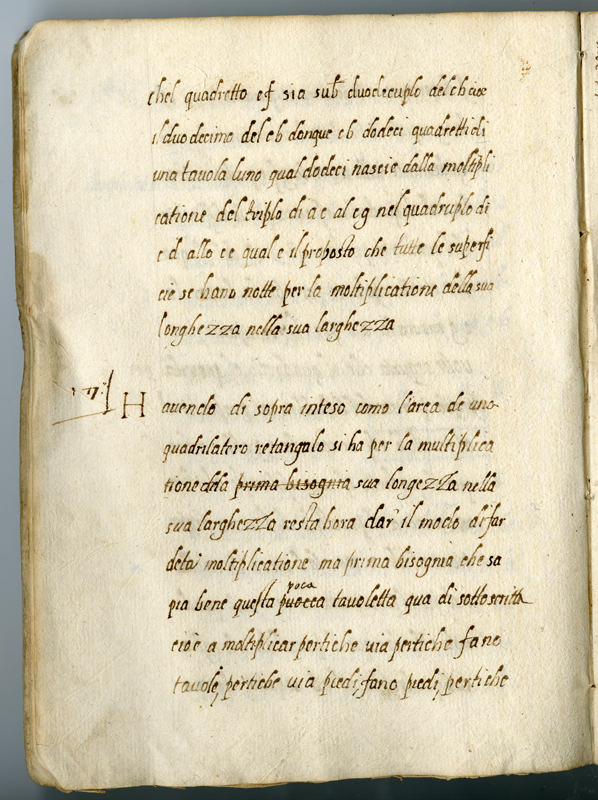 chel quadretto ef sia sub duodecuplo del cb cioe
il duodecimo del cb donque cb dodeci quadretti di
una tavola luno qual dodeci nascie dalla moltipli
catione del triplo di ac al cg nel quadruplo di
cd allo ce qual e il proposto che tutte le superfi
cie se hano notte per la moltiplicatione della sua
longhezza nella sua larghezza
Havendo di sopra inteso como l'area de uno
quadrilatero retangalo si ha per la multiplica
tione dela prima bisognia sua longezza nella
sua larghezza resta hora dar il modo di far
deta moltiplicatione ma prima bisognia che sa
pia bene questa puocca poca tavoletta qua di sottoscritta
cioè a moltiplicar pertiche via pertiche fano
tavole, pertiche via piedi, fano piedi, pertiche